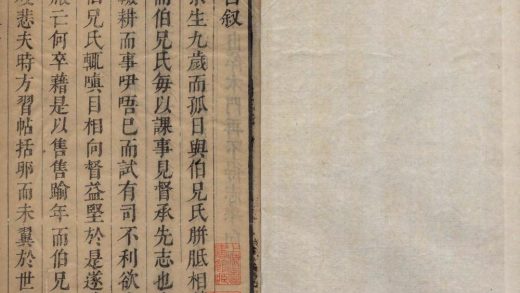 叙
生九歲而孤日與伯兄氏胼胝相
而伯兄氏每以課事見督承先志也
輟耕而事咿唔已而試有司不利欲
伯兄氏輒嗔目相向督益堅於是遂
亡何卒藉是以售售踰年而伯兄
悲夫時方習帖括卵而未翼於世